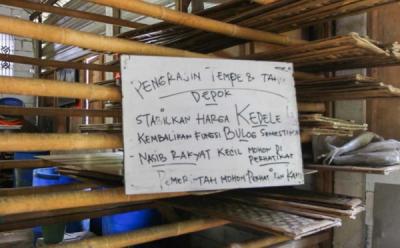 PENGRAJIN TEMPE & TAHU
DEPOK
STABILKAN HARGA KEDELE
KEMBALIKAN FUNGSI BULOG SEMESTINYA
- NASIB RAKYAT KECIL MOHON DI
PERHATIKAN
PEMERINTAH MOHON PERHATIKAN KAMI